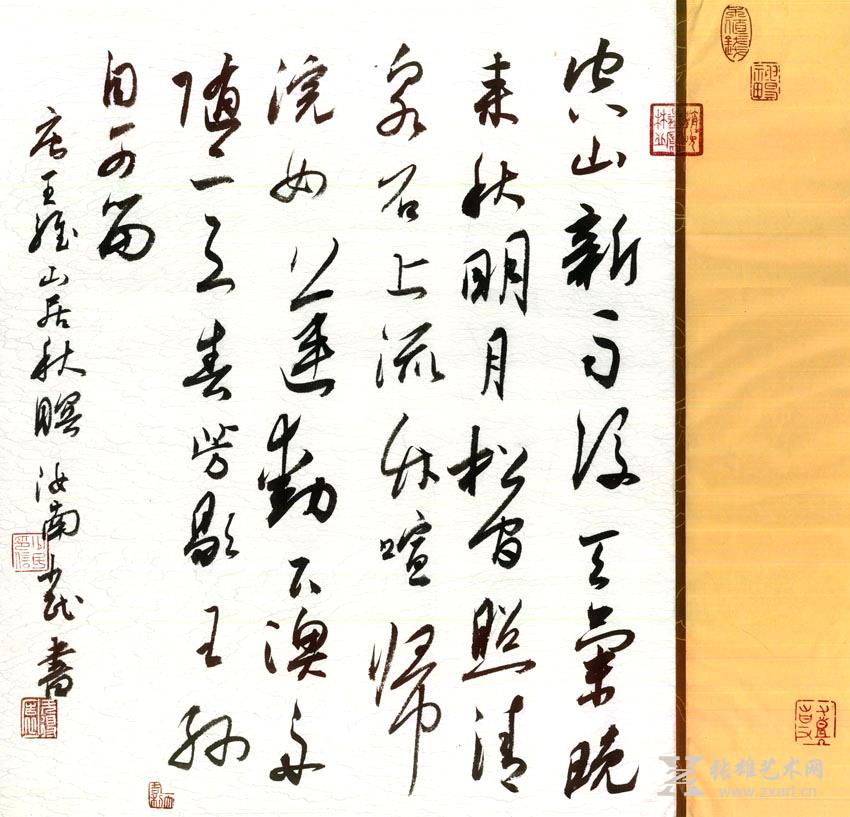 空山新雨後天氣晚
来秋明月松間照清
泉石上流竹喧帰
浣女蓮動下漁舟
随意春芳歇王孫
自可留
唐王維山居秋暝 汝南 書
张雄艺术网
www.zxart.cn